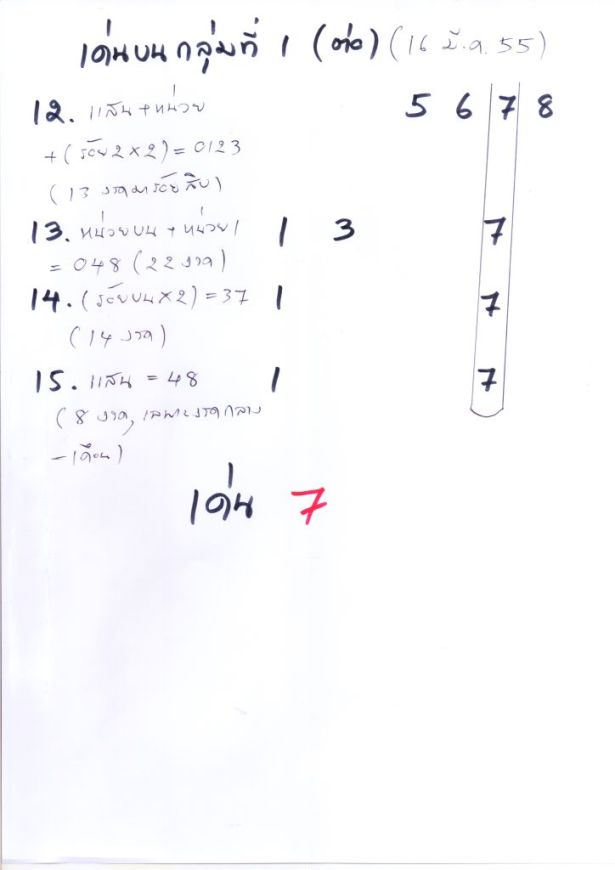 เด่นบน กลุ่มที่ 1 (ต่อ) (16 มี.ค. 55)
12. แสน + หน่วย 5 6 7 8
+ (ร้อย 2 × 2) = 0123
(13 งวดมาร้อยสิบ)
13. หน่วยบน + หน่วย 1 3 7
= 048 (22 งวด)
14. (ร้อยบน × 2) = 37 1 7
(14 งวด)
15. แสน = 48 1 7
(8 งวด, เฉพาะงวดกลาง
- เดือน)
เด่น 7